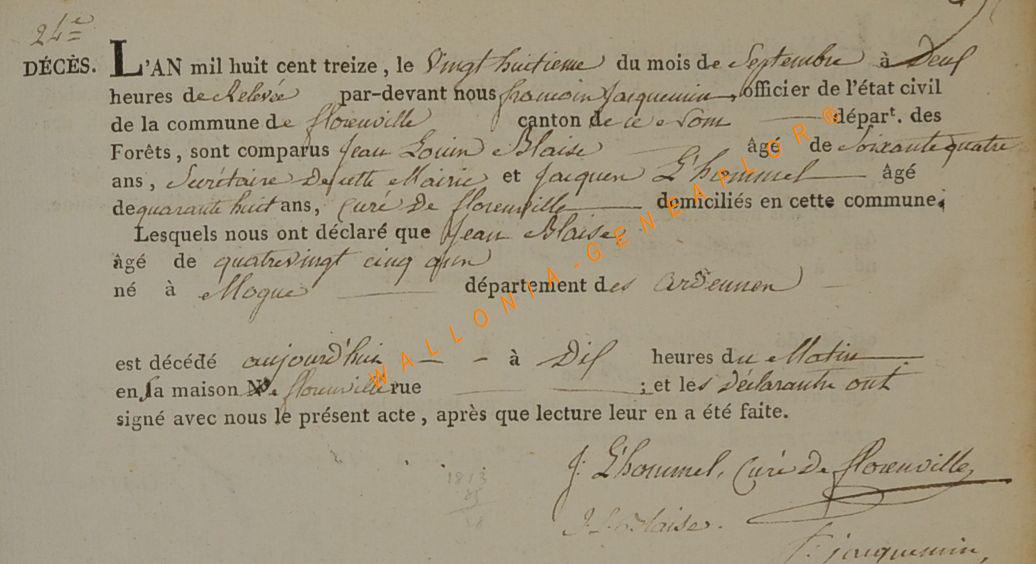 24e
DÉCÈS. L'AN mil huit cent treize, le Vingt huitieme du mois de Septembre à Deux
heures de Relevée par-devant nous francois Jacquemin, officier de l'état civil
de la commune de florenville canton de ce Nom départ. des
Forêts, sont comparus Jean Louis Blaise âgé de Soixante quatre
ans, Secrétaire de cette Mairie et Jacques L'hommel âgé
de quarante huit ans, Curé de florenville domiciliés en cette commune.
Lesquels nous ont déclaré que Jean Blaise
âgé de quatrevingt cinq ans
né à Mogue département des ardennes
est décédé aujourd'hui à Dix heures du Matin
en sa maison N.º florenville rue ; et les déclarants ont
signé avec nous le présent acte, après que lecture leur en a été faite.
J: L'hommel, Curé de florenville
1813
J. L. Blaise.
f: jacquemin,
WALLONIA-GENEAFLOR®